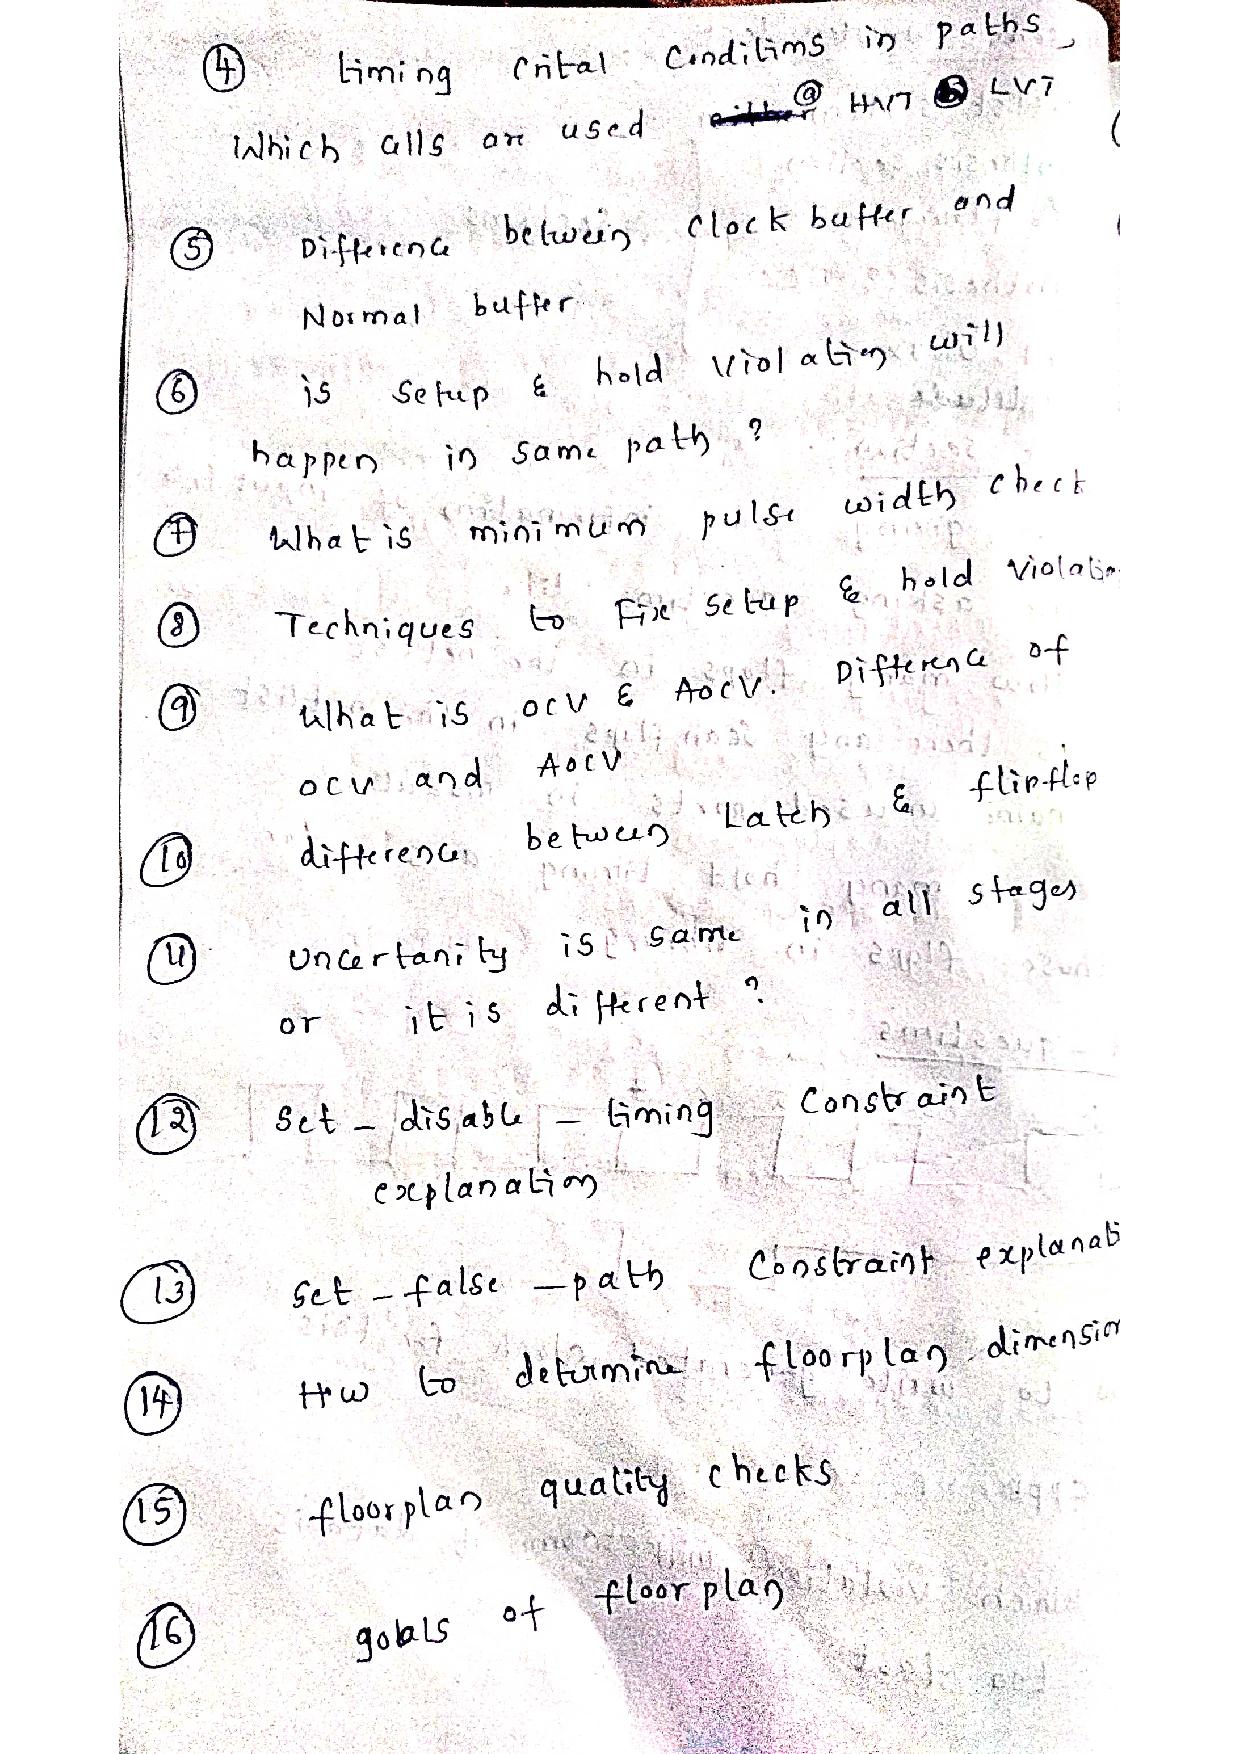 ④ timing crital Conditims in paths,
Which clls are used @ HVT LVT
⑤ Difference between Clock buffer and
Normal buffer
⑥ is setup & hold Violation will
happen in same path ?
⑦ What is minimum pulse width check
⑧ Techniques to Fix setup & hold Violatio
⑨ What is OCV & AOCV. Difference of
OCV and AOCV
⑩ difference between Latch & flipflop
⑪ Uncertanity is same in all stages
or it is different ?
⑫ Set - disable - timing Constraint
explanation
⑬ Set - false - path Constraint explanati
⑭ How to determine floorplan dimension
⑮ floorplan quality checks
⑯ goals of floorplan